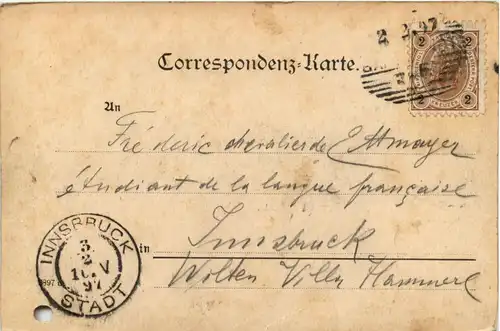 2 2.97
2 2
Correspondenz-Karte.
2 2
An
Fréderic chevalier de Ettmayer
étudiant de la langue française
INNSBRUCK
3.
2
10.V
97
STADT
in Innsbruck
897
Wilten Villa Hammerl